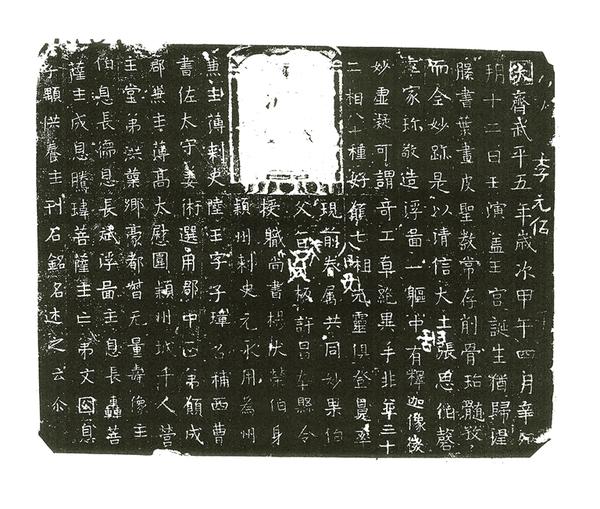 李元伯
大齊武平五年歲次甲午四月辛
朔十二日王演蓋王宮誕生猶歸涅
槃書葉畫皮聖教常存削骨珀髓
而全妙跡是以清信大士張思伯磬
室家珍敬造浮啚一軀中有釋迦像
妙虛凝可謂奇工草絕異手非華三十
二相八十種好 靈俱登
現前眷屬共同妙果伯
父 板許昌 縣令
授職尚書楊 榮伯身
潁州刺史元永用為州
兼主薄刺史陸王字子璋召補西曹
書佐太守姜術選用郡中正弟領成
郡兼主薄高太慰圍潁州城千人營
主堂弟洪業鄉豪都督無量壽像主
伯息長濡息長斌浮啚主息長轟菩
薩主成息騰瑋菩薩主亡弟文 息
子顯供養主刊石銘名述之云尒